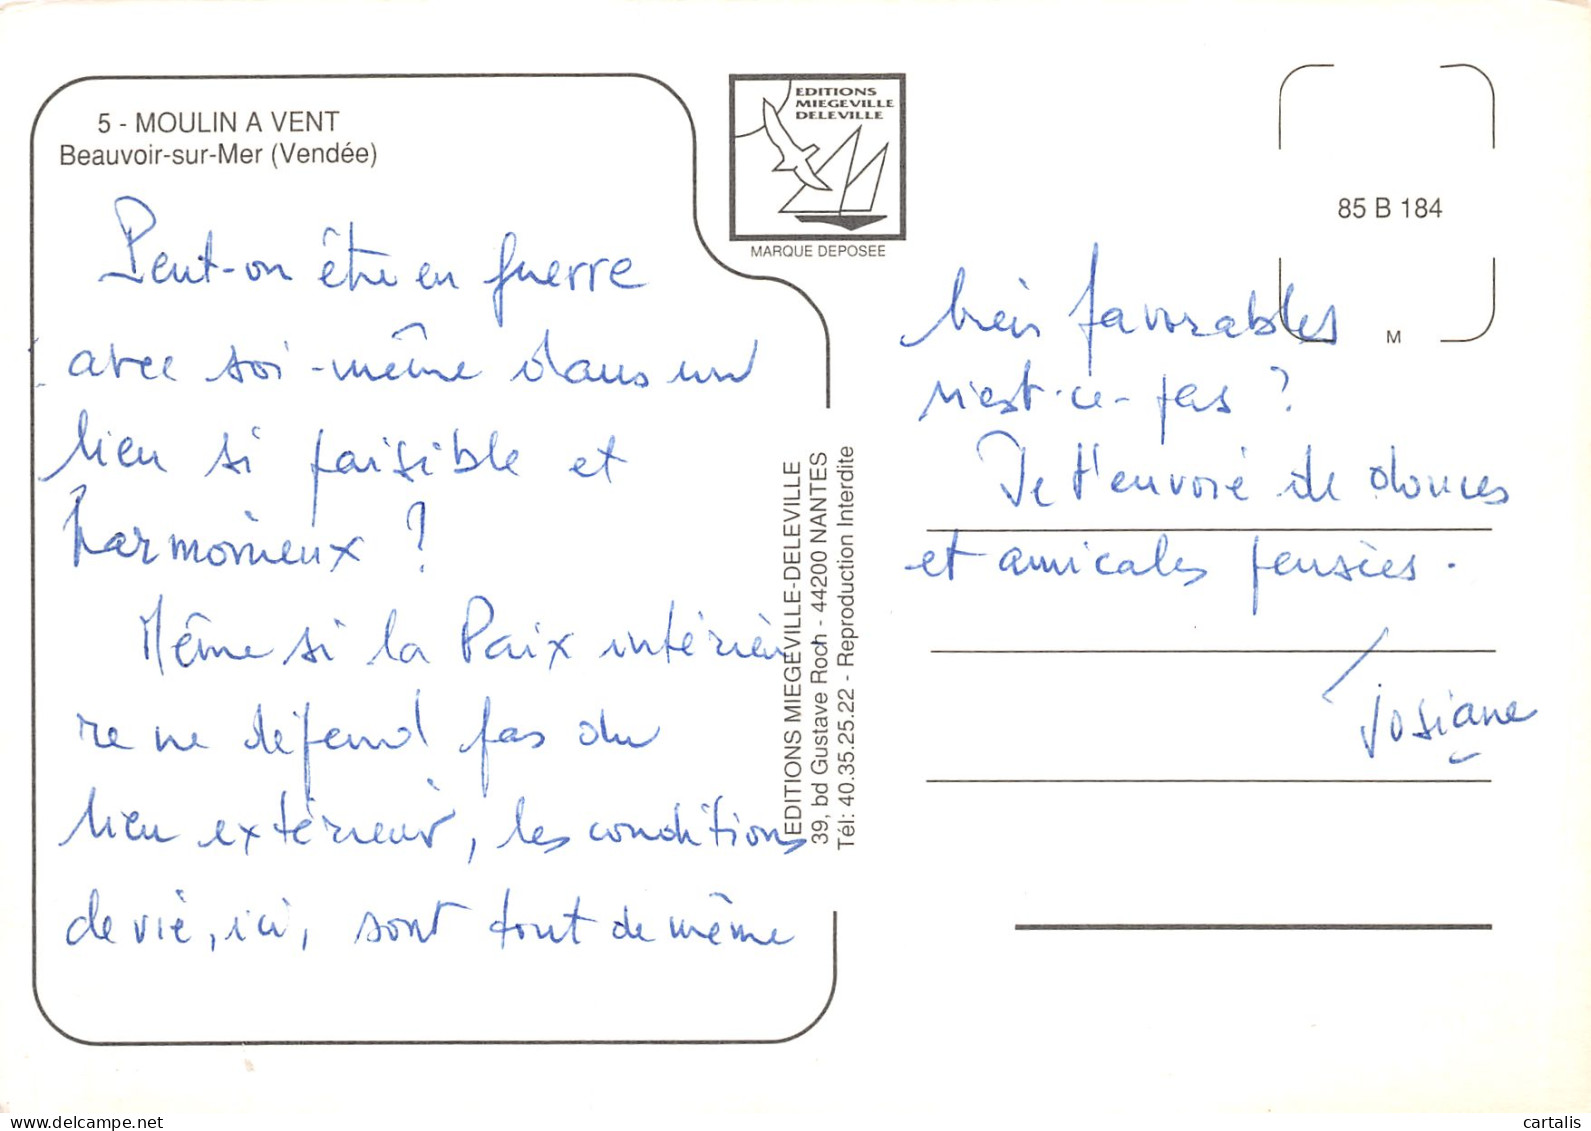 5 - MOULIN A VENT
Beauvoir-sur-Mer (Vendée)
EDITIONS
MIEGEVILLE
DELEVILLE
MARQUE DEPOSEE
85 B 184
M
Peut-on être en guerre
avec soi-même dans un
lieu si paisible et
harmonieux ?
Même si la Paix intérieu
re ne dépend pas du
lieu extérieur, les conditions
de vie, ici, sont tout de même
EDITIONS MIEGEVILLE-DELEVILLE
39, bd Gustave Roch - 44200 NANTES
Tél: 40.35.25.22 - Reproduction Interdite
bien favorables
n'est-ce-pas ?
Je t'envoie de douces
et amicales pensées.
Josiane
www.delcampe.net
cartalis